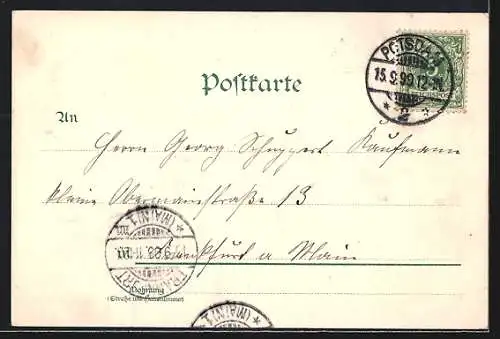 Postkarte
POTSDAM
15.9.99.12-1N.
* 2 *
REICHSPOST
An
Herrn Georg Schuppert Kaufmann
kleine Obermainstraße 13
Frankfurt a Main
FRANKFURT
* (MAIN) 1 *
Wohnung
(Straße und Hausnummer)
* (MAIN) 1